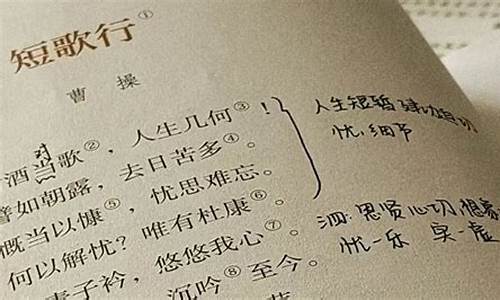 短歌行①
曹操
酒当歌②，人生几何③！
对
譬如朝露，去日苦多④。
慨当以慷⑤，忧思难忘。
何以解忧？唯有杜康⑥。
青子衿，悠悠我心⑦。
沉吟⑧至今。
人生短暂 建功
忧：细节
泗：思贤心切
忧一乐 实一虚